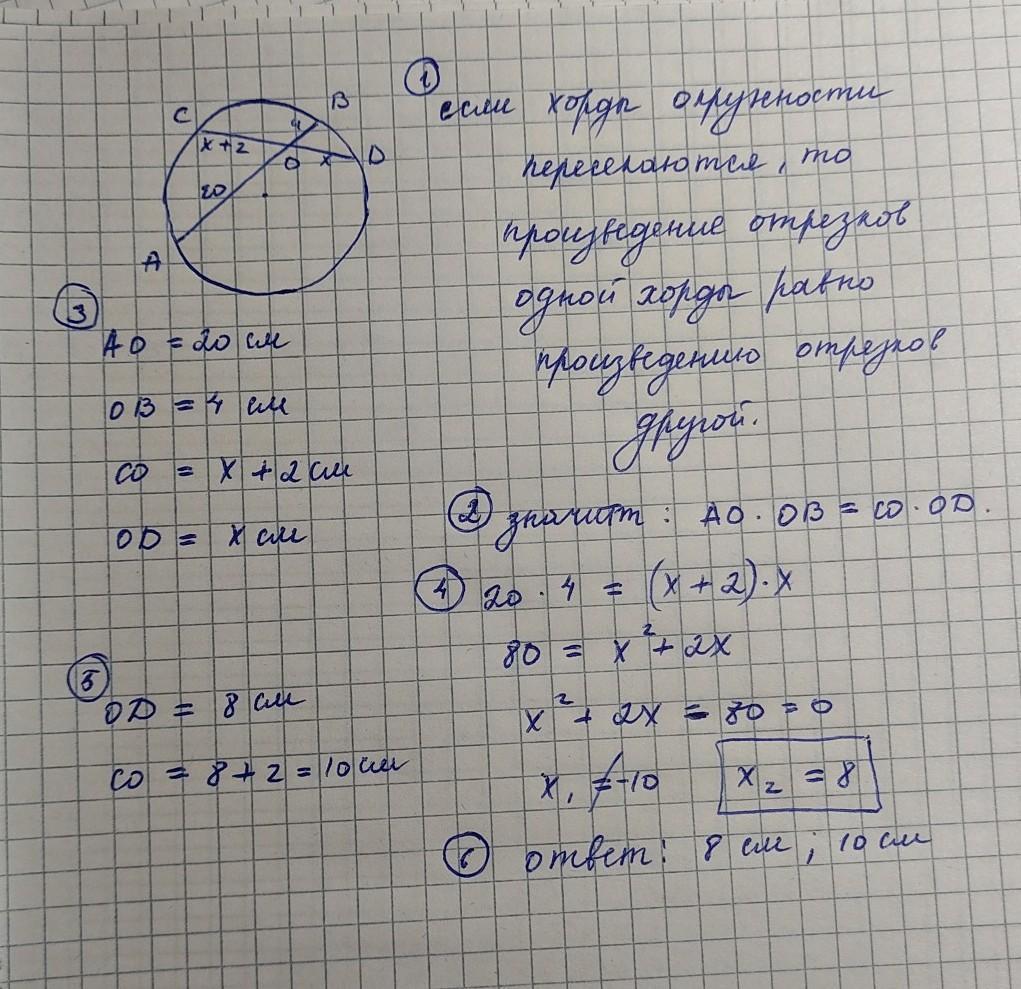 C
B
4
x+2
O
x
D
20
A
① если хорды окружности
пересекаются, то
произведение отрезков
одной хорды равно
произведению отрезков
другой.
② значит: AO · OB = CO · OD.
③
AO = 20 см
OB = 4 см
CO = x + 2 см
OD = x см
④ 20 · 4 = (x + 2) · x
80 = x² + 2x
x² + 2x - 80 = 0
x₁ ≠ -10 x₂ = 8
⑤
OD = 8 см
CO = 8 + 2 = 10 см
⑥ ответ: 8 см ; 10 см